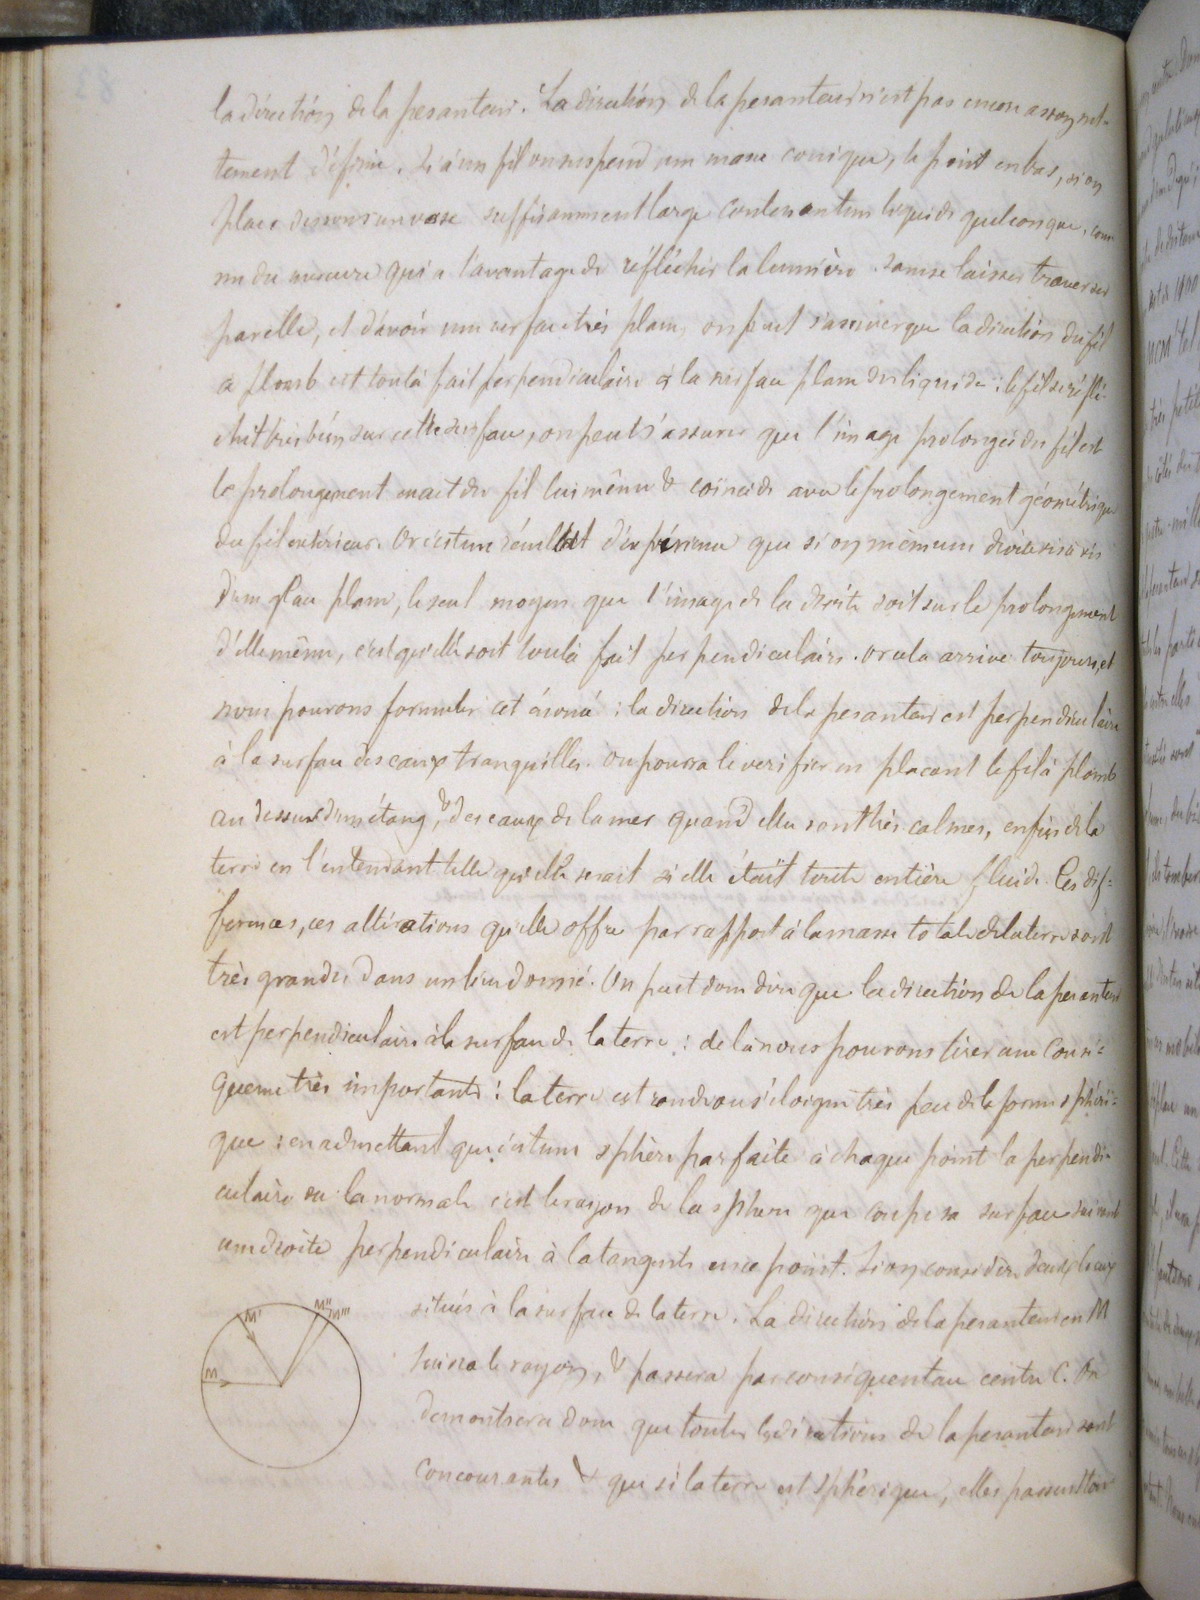 la direction de la pesanteur. La direction de la pesanteur n'est pas encore assez net-
tement définie. Si à un fil on suspend une masse conique, la point en bas, si on
place dessous un vase suffisamment large contenant un liquide quelconque, com
me du mercure qui a l'avantage de réfléchir la lumière sans se laisser traverser
par elle, et d'avoir une surface très plane, on peut s'assurer que la direction du fil
à plomb est tout à fait perpendiculaire à la surface plane du liquide : le fil se réflé-
chit très bien sur cette surface, on peut s'assurer que l'image prolongée du fil est
le prolongement exact du fil lui même & coïncide avec le prolongement géométrique
du fil extérieur. Or c'est un résultat d'expérience que si on mène une droite vis à vis
d'une glace plane, le seul moyen que l'image de la droite soit sur le prolongement
d'elle même, c'est qu'elle soit tout à fait perpendiculaire. Or cela arrive toujours, et
nous pouvons formuler cet énoncé : la direction de la pesanteur est perpendiculaire
à la surface des eaux tranquilles. On pourra le verifier en placant le fil à plomb
au dessus d'un étang, & des eaux de la mer quand elles sont très calmes, enfin de la
terre en l'entendant telle qu'elle serait si elle était toute entière fluide. Ces dif-
ferences, ces altérations qu'elle offre par rapport à la masse totale de la terre sont
très grandes dans un lieu donné. On peut donc dire que la direction de la pesanteur
est perpendiculaire à la surface de la terre : de là nous pouvons tirer une consé-
quence très importante : la terre est ronde ou s'éloigne très peu de la forme sphéri-
que : en admettant que c'est une sphère parfaite à chaque point la perpendi-
culaire ou la normale c'est le rayon de la sphere qui coupe sa surface suivant
une droite perpendiculaire à la tangente en ce point. Si on considère deux lieux
situés à la surface de la terre. La direction de la pesanteur en M
suivra le rayon, & passera par conséquent au centre C. On
demontrera donc que toutes les directions de la pesanteur sont
concourantes & que si la terre est sphérique, elles passent tou
M
M'
M''
M'''